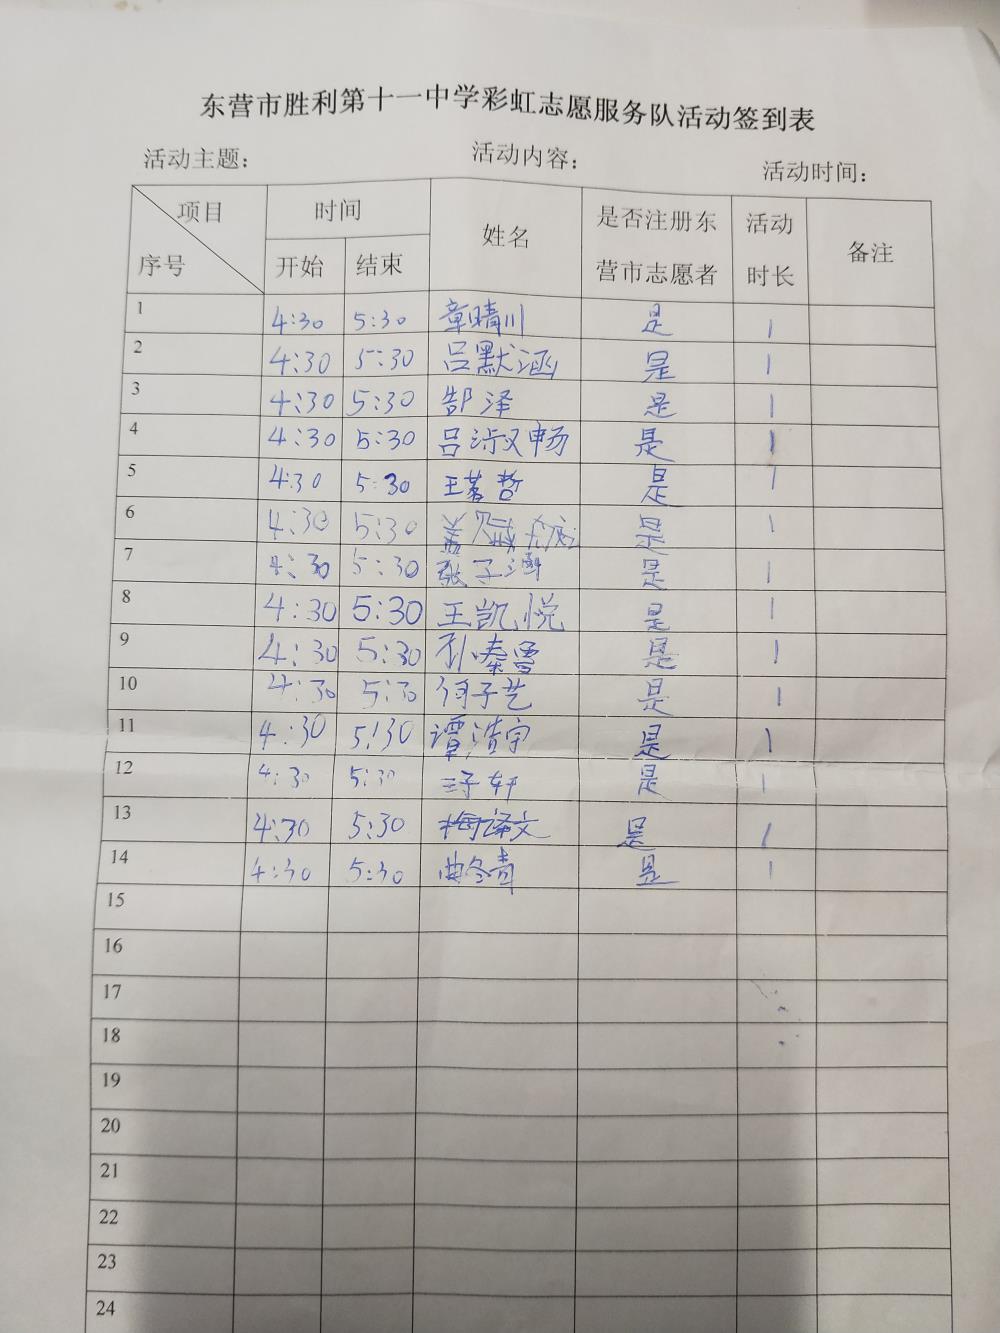 东营市胜利第十一中学彩虹志愿服务队活动签到表
活动主题： 活动内容： 活动时间：
项目 时间 姓名 是否注册东 活动 备注
序号 开始 结束 营市志愿者 时长
1 4:30 5:30 章晴川 是 1
2 4:30 5:30 吕默涵 是 1
3 4:30 5:30 郜泽 是 1
4 4:30 5:30 吕淑畅 是 1
5 4:30 5:30 王著哲 是 1
6 4:30 5:30 是 1
7 4:30 5:30 张子涵 是 1
8 4:30 5:30 王凯悦 是 1
9 4:30 5:30 是 1
10 4:30 5:30 何子艺 是 1
11 4:30 5:30 谭浩宇 是 1
12 4:30 5:30 是 1
13 4:30 5:30 梅译文 是 1
14 4:30 5:30 曲冬青 是 1
15
16
17
18
19
20
21
22
23
24